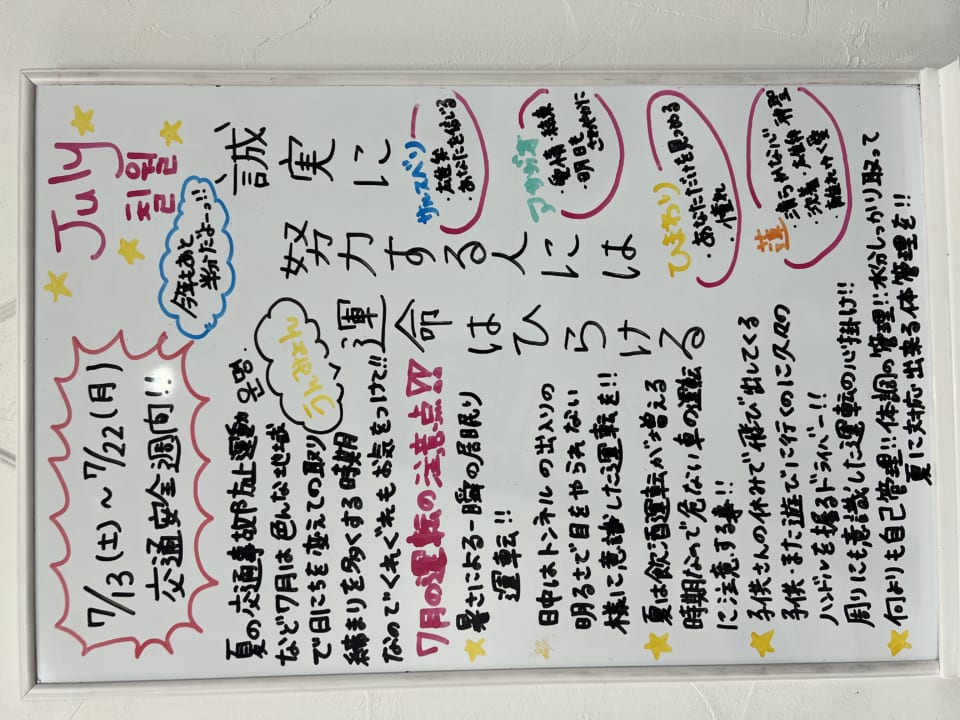 July
칠월
今年もあと
半分だよーっ!!
7/13(土)～7/22(月)
交通安全週間!!
誠実に
努力する人には
運命はひらける
운명
うんみょん
夏の交通事故防止運動
など7月は色んな地域
で日にちを変えての取り
締まりを多くする時期
なのでくれぐれもお気をつけて!!
7月の運転の注意点!!
暑さによる一瞬の居眠り
運転!!
日中はトンネルの出入りの
明るさで目をやられない
様に意識した運転を!!
夏は飲酒運転が増える
時期なので危ない車の運転
にご注意する事!!
子供さんの休みで飛び出してくる
子供また遊びに行くのに久々の
ハンドルを握るドライバー!!
周りにも意識した運転の心掛け!!
何よりも自己管理!!体調の管理!!水分しっかり取って
夏に対応出来る体管理を!!
サルスベリ
・雄弁
・あなたを信じる
アサガオ
・愛情 ・結束
・明日も
さわやかに
ひまわり
・あなただけを見つめる
・憧れ
蓮
・清らかな心 ・神聖
・沈着 ・休養
・離れゆく愛